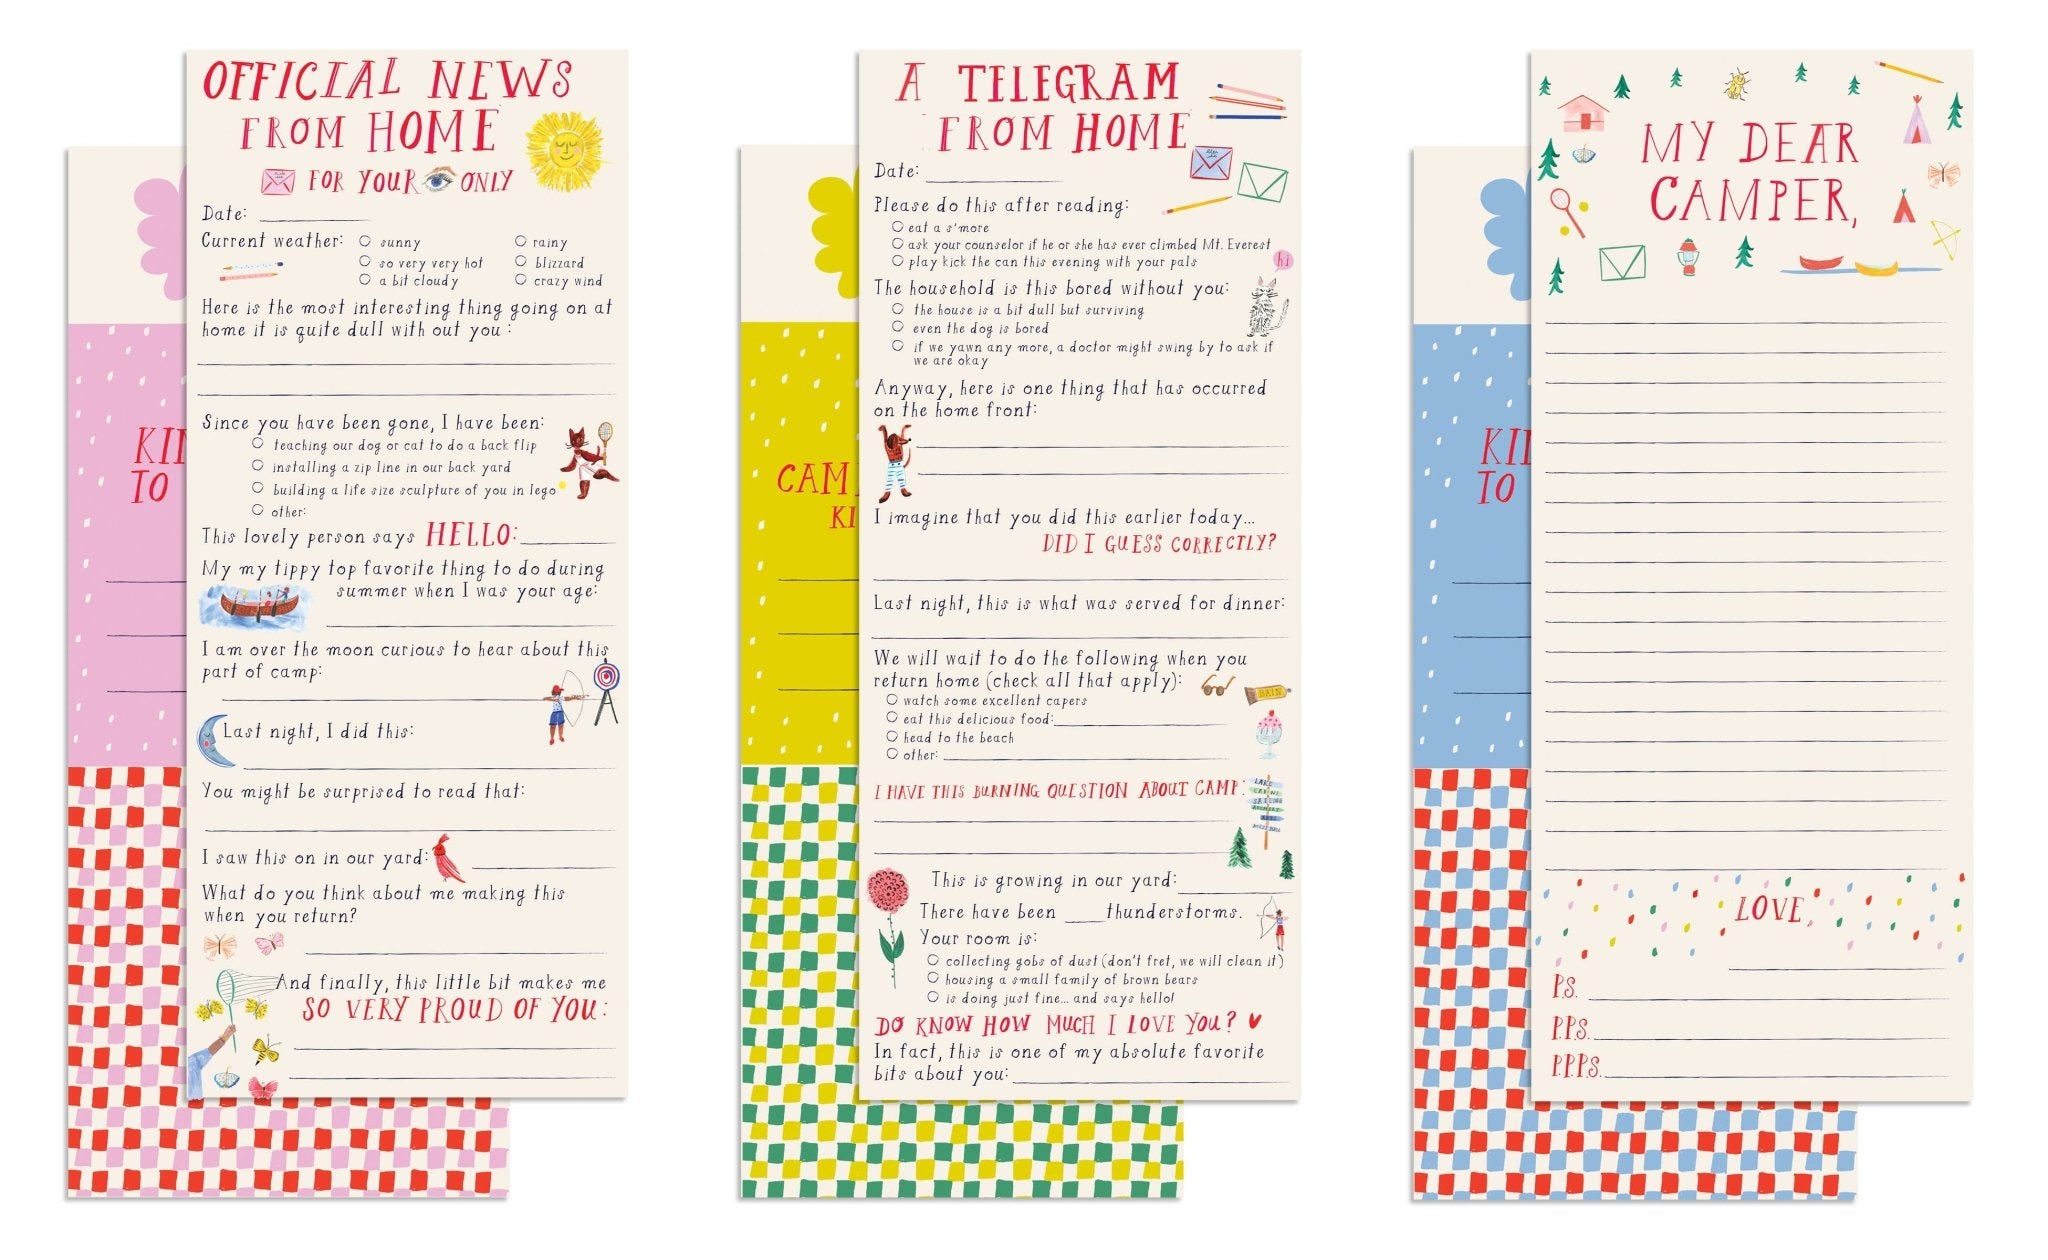 OFFICIAL NEWS
FROM HOME
FOR YOUR ONLY
Date:
Current weather:
sunny
so very very hot
a bit cloudy
rainy
blizzard
crazy wind
Here is the most interesting thing going on at
home it is quite dull with out you :
Since you have been gone, I have been:
teaching our dog or cat to do a back flip
installing a zip line in our back yard
building a life size sculpture of you in lego
other:
This lovely person says HELLO:
My my tippy top favorite thing to do during
summer when I was your age:
I am over the moon curious to hear about this
part of camp:
Last night, I did this:
You might be surprised to read that:
I saw this on in our yard:
What do you think about me making this
when you return?
And finally, this little bit makes me
SO VERY PROUD OF YOU:
TO
A TELEGRAM
FROM HOME
Date:
Please do this after reading:
eat a s'more
ask your counselor if he or she has ever climbed Mt. Everest
play kick the can this evening with your pals
hi
The household is this bored without you:
the house is a bit dull but surviving
even the dog is bored
if we yawn any more, a doctor might swing by to ask if
we are okay
Anyway, here is one thing that has occurred
on the home front:
I imagine that you did this earlier today...
DID I GUESS CORRECTLY?
Last night, this is what was served for dinner:
We will wait to do the following when you
return home (check all that apply):
watch some excellent capers
eat this delicious food:
head to the beach
other:
I HAVE THIS BURNING QUESTION ABOUT CAMP:
LAKE
CABINS
SAILING
ARCHERY
ARTS
This is growing in our yard:
There have been ___ thunderstorms.
Your room is:
collecting gobs of dust (don't fret, we will clean it)
housing a small family of brown bears
is doing just fine... and says hello!
DO KNOW HOW MUCH I LOVE YOU?
In fact, this is one of my absolute favorite
bits about you:
CAM
KI
MY DEAR
CAMPER,
LOVE,
P.S.
P.P.S.
P.P.P.S.
KI
TO